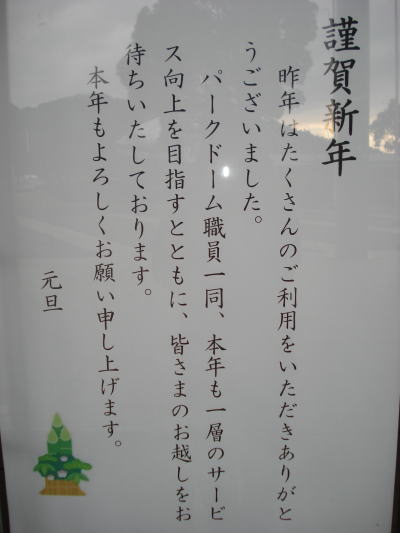 謹賀新年
昨年はたくさんのご利用をいただきありがと
うございました。
パークドーム職員一同、本年も一層のサービ
ス向上を目指すとともに、皆さまのお越しをお
待ちいたしております。
本年もよろしくお願い申し上げます。
元旦